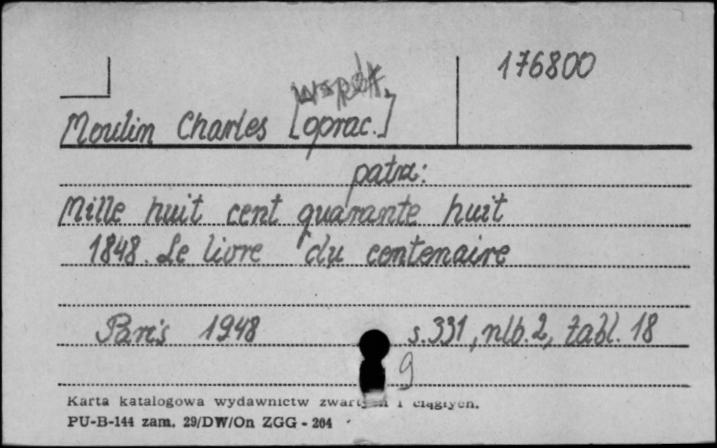 176800
współ.
Moulin Charles [oprac.]
patrz:
Mille huit cent quarante huit
1848. Le livre du centenaire
Paris 1948 s. 331, nlb. 2, tabl. 18
9
Karta katalogowa wydawnictw zwartych i ciągłych.
PU-B-144 zam. 29/DW/On ZGG - 264